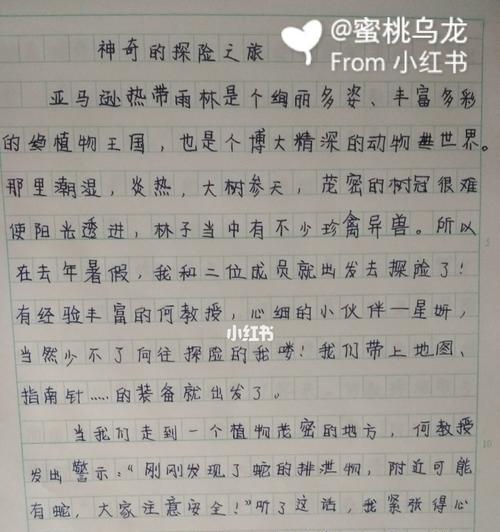 @蜜桃乌龙
From 小红书
神奇的探险之旅
亚马逊热带雨林是个绚丽多姿、丰富多彩
的绝植物王国，也是个博大精深的动物世界。
那里潮湿，炎热，大树参天，茂密的树冠很难
使阳光透进，林子当中有不少珍禽异兽。所以
在去年暑假，我和二位成员就出发去探险了！
有经验丰富的何教授，心细的小伙伴一星妍，
小红书
当然少不了向往探险的我喽！我们带上地图、
指南针……的装备就出发了。
当我们走到一个植物茂密的地方，何教授
发出警示：“刚刚发现了蛇的排泄物，附近可能
有蛇，大家注意安全！”听了这话，我紧张得心
5
10